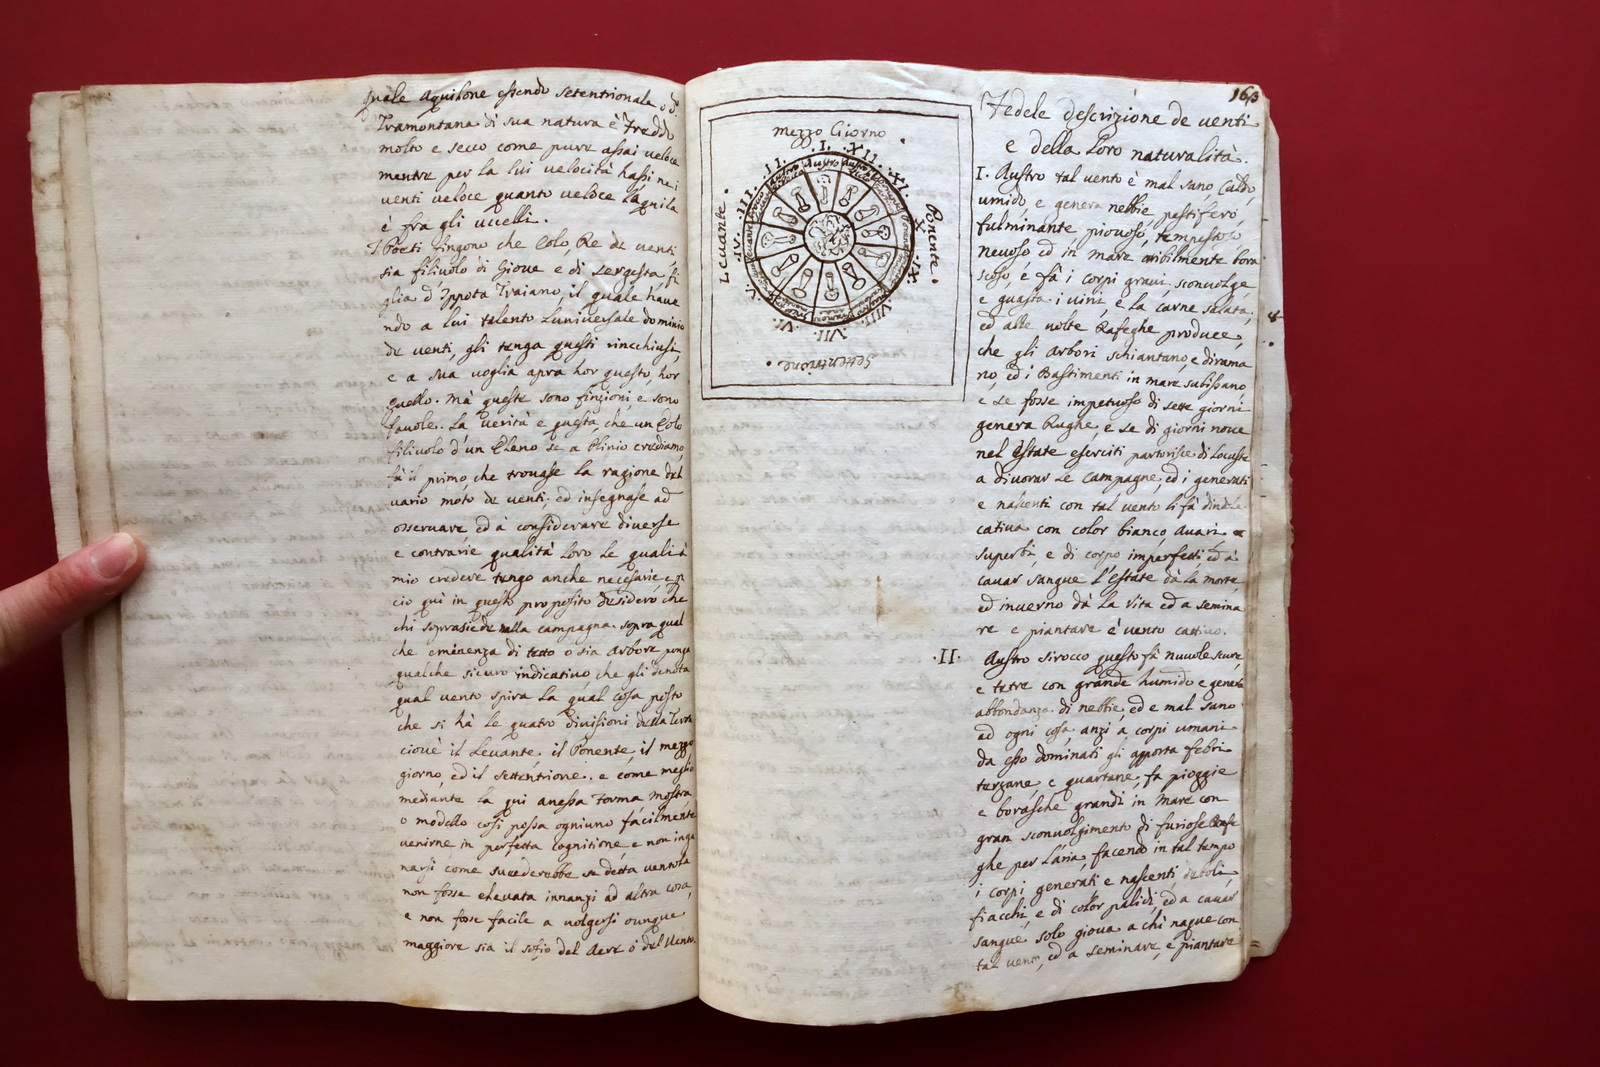 quale Aquilone essendo setentrionale o d.ª
Tramontana di sua natura è Freddo
molto e secco come pure assai veloce
mentre per la lui velocità hassi nei
venti veloce quanto veloce l'aquila
è fra gli uccelli.
I Poeti fingono che Eolo, Re de venti
sia filiuolo di Gioue e di Sergesta fi
glia d'Ippota Traiano, il quale haue
ndo a lui talento l'uniuersale dominio
de venti, gli tenga questi rincchiusi,
e a sua voglia apra hor questo, hor
quello. Mà queste sono finzioni, e sono
fauole. La verità e questa, che un Eolo
filiuolo d'un Eleno se a Plinio crediamo,
fù il primo che trouasse la ragione del
uario moto de venti; ed insegnase ad
osseruare ed à considerare diuerse
e contrarie qualità loro le quali à
mio credere tengo anche necesarie e p
ciò quì in questo proposito desidero che
chi soprasiede nella campagna sopra qual
che eminenza di tetto o sia Arbore ponga
qualche sicuro indicatiuo che gli denota
qual vento spira la qual cosa posto
che si hà le quatro diuisioni della Terra
cioue il Leuante, il Ponente, il mezzo
giorno, ed il settentrione. e come meglio
mediante la qui anessa Forma mostra
o modello cosi possa ogniuno facilmente
uenirne in perfetta cognitione, e non inga
narsi come sucederebbe se detta ventola
non fosse eleuata innanzi ad altra cosa,
e non fosse facile a uolgersi ounque
maggiore sia il sofio del Aere ò del Vento.
163
mezzo Giorno
.I. .XII. .XI. X .IX. VIII. .VII. .VI. .V. .IV. .III. .II.
Leuante.
Ponente.
Settentrione.
Austro
Fedele descrizione de uenti
e della loro naturalità.
I. Austro tal vento è mal sano Caldo,
umido e genera nebbie pestifero,
fulminante piouoso, tempestoso
neuoso ed in mare oribilmente bora
scoso, e fà i corpi graui, sconuolge
e guasta i uini, e la carne salata,
ed alle uolte Rafeghe produce,
che gli Arbori schiantano, e dirama
no, ed i Bastimenti in mare subissano
e se fosse impetuoso di sette giorni
genera Rughe, e se di giorni noue
nel Estate eserciti partorise di locuste
a diuorar le campagne, ed i generati
e nascenti con tal vento li fà
catiua con color bianco, Auari e
superbi, e di corpo imperfetti ed à
cauar sangue l'Estate dà la morte,
ed inuerno dà la vita ed a semina
re e piantare è vento catiuo.
.II. Austro sirocco questo fà nuuole scure,
e tetre con grande humido e genera
abbondanza di nebbie, ed e mal sano
ad ogni cosa, anzi a corpi umani
da esso dominati gli apporta febri
terzane, e quartane, fa pioggie
e borasche grandi in Mare con
gran sconuolgimento di furiose Rafe
ghe per l'aria, facendo in tal tempo
i corpi generati e nascenti deboli,
fiacchi, e di color palidi, ed a cauar
sangue solo gioua a chi naque con
tal vento, ed a seminare, e piantare